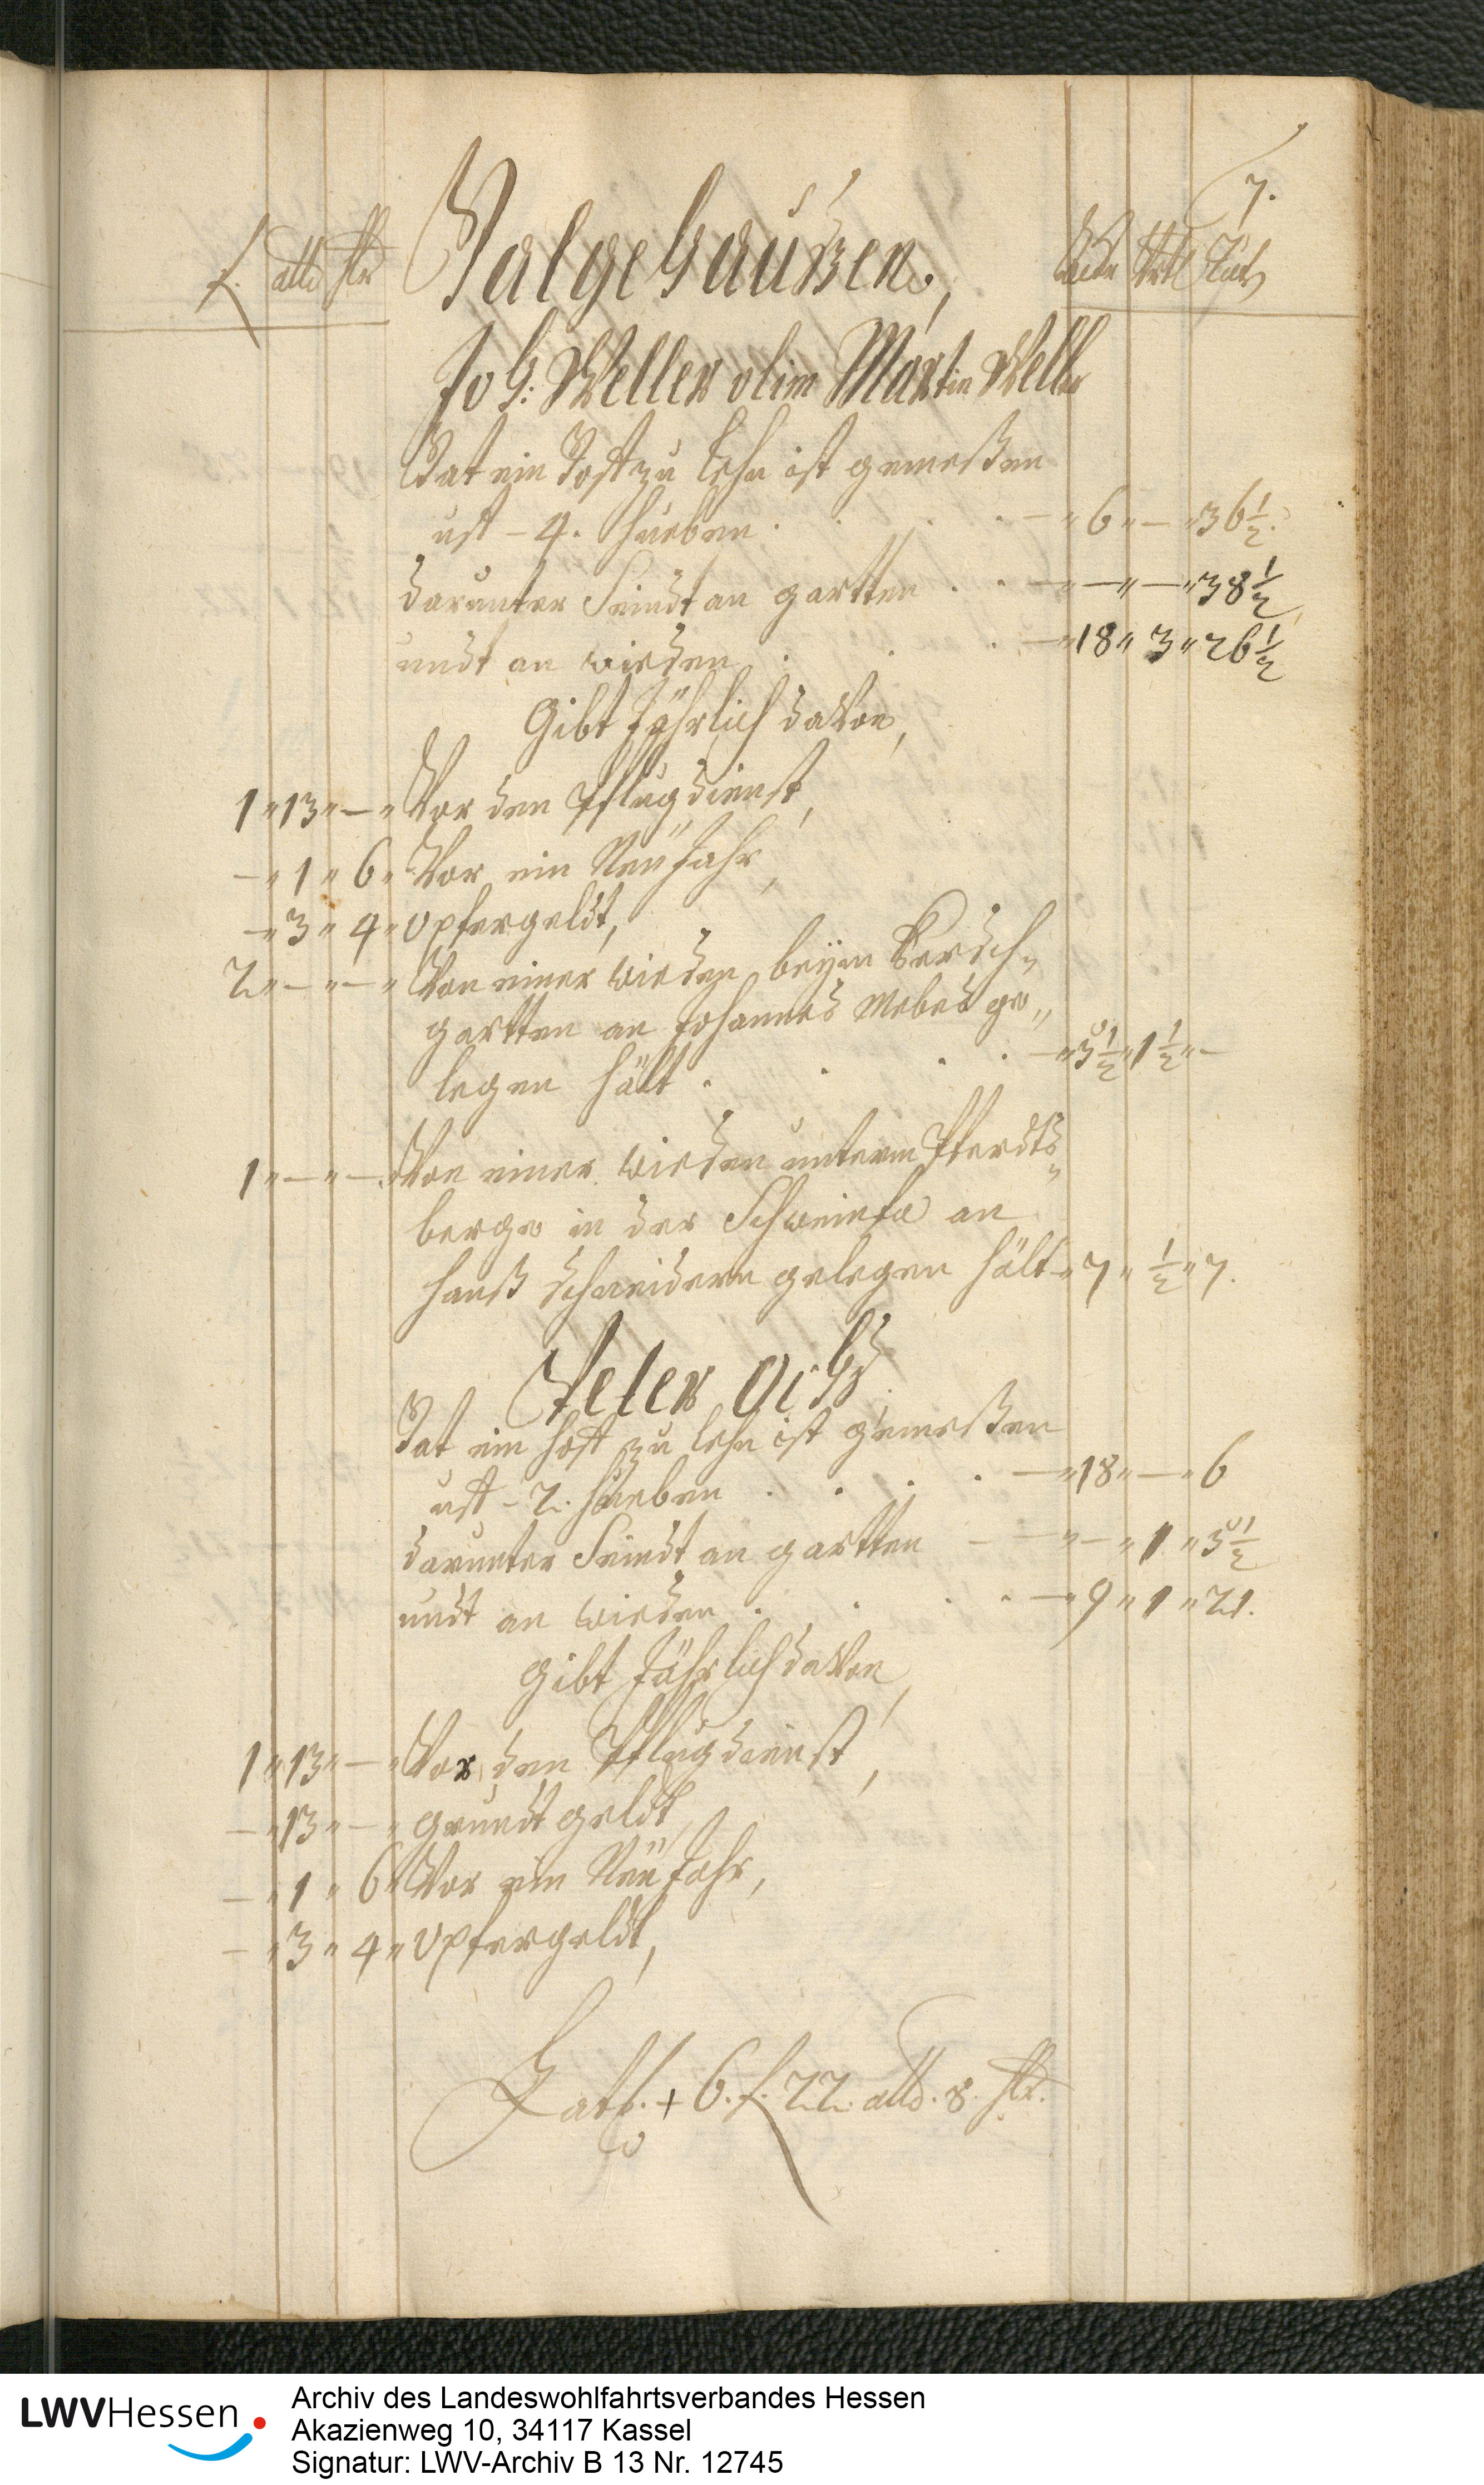 7.
f. alb hlr Halgehaußen, Acker Vrtl Ruth
Joh: Weller olim Martin Weller
Hat ein Hoff zu lehn ist gemeßen
uff - 4. Hueben . . . . — " 6 " — " 36 1/2.
darunter seindt an gartten . . — " — " — " 38 1/2
undt an wiesen . . . — " 18 " 3 " 26 1/2
Gibt Jährlich davon,
1 " 13 " — " Vor den Pflugdienst,
— " 1 " 6 " Vor ein Neü Jahr,
— " 3 " 4 " Opfergeldt,
2 " — " — " Von einer wiesen beym
gartten an Johannes Mebes ge„
legen hält . . . . — " 3 1/2 " 1 1/2 " —
1 " — " — " Von einer wiesen unterm Pferdts„
berge in der an
Hanß Schneidern gelegen hält " 7 " 1/2 " 7.
Peter
Hat ein Hoff zu lehn ist gemeßen
uff - 2. Hueben . . . . — " 18 " — " 6
darunter seindt an gartten - — " — " 1 " 3 1/2
undt an wiesen . . . . — " 9 " 1 " 21.
gibt Jährlich davon,
1 " 13 " — " Vor den Pflugdienst,
— " 13 " — " grundt geldt
— " 1 " 6 " Vor ein Neü Jahr,
— " 3 " 4 " Opfergeldt,
Latf. + 6. f. 22. alb. 8. hlr.
LWVHessen
Archiv des Landeswohlfahrtsverbandes Hessen
Akazienweg 10, 34117 Kassel
Signatur: LWV-Archiv B 13 Nr. 12745